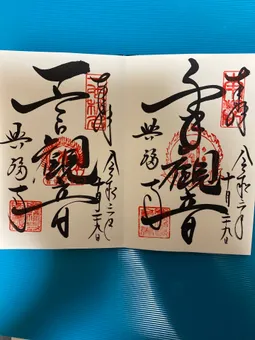 奉拝
令和二年
十月二十九日
千手観音
興福寺
奉拝
令和二年
十月二十九日
一言観音
興福寺